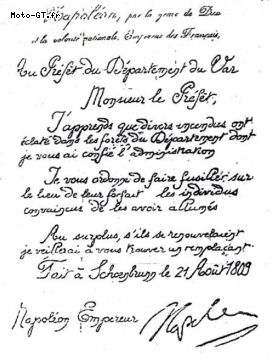 Moto-GT.fr
Napoléon, par la grace de Dieu
et la volonté nationale, Empereur des Français,
Au Préfet du Département du Var
Monsieur le Préfet,
J'apprends que divers incendies ont
éclaté dans les forêts du Département dont
je vous ai confié l'administration
Je vous ordonne de faire fusiller sur
le lieu de leur forfait les individus
convaincus de les avoir allumés
Au surplus, s'ils se renouvelaient
je veillerai à vous trouver un remplaçant.
Fait à Schoenbrunn le 21 Août 1809
Napoléon Empereur